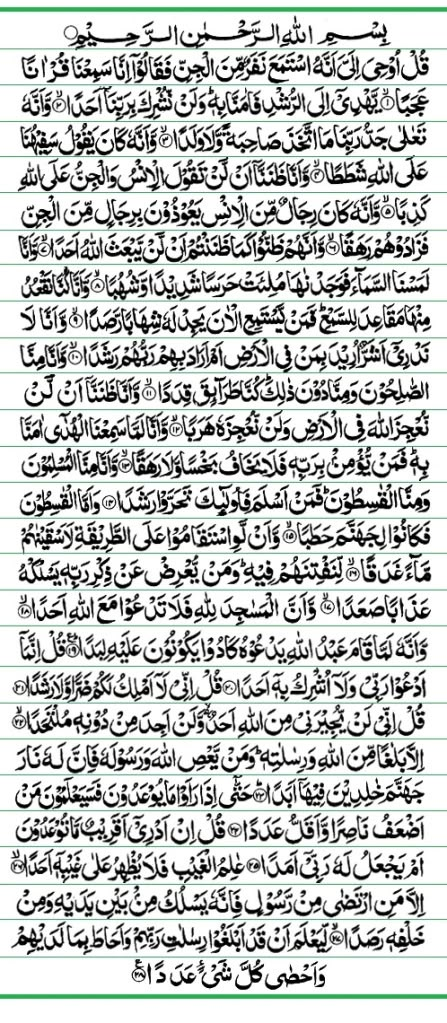 بِسْمِ اللهِ الرَّحْمٰنِ الرَّحِيْمِ
قُلْ اُوْحِىَ اِلَىَّ اَنَّهُ اسْتَمَعَ نَفَرٌ مِّنَ الْجِنِّ فَقَالُوْۤا اِنَّا سَمِعْنَا قُرْاٰنًا
عَجَبًا ۙ﴿۱﴾ يَّهْدِىْۤ اِلَى الرُّشْدِ فَاٰمَنَّا بِهٖ ؕ وَلَنْ نُّشْرِكَ بِرَبِّنَاۤ اَحَدًا ۙ﴿۲﴾ وَّاَنَّهٗ
تَعٰلٰى جَدُّ رَبِّنَا مَا اتَّخَذَ صَاحِبَةً وَّلَا وَلَدًا ۙ﴿۳﴾ وَّاَنَّهٗ كَانَ يَقُوْلُ سَفِيْهُنَا
عَلَى اللهِ شَطَطًا ۙ﴿۴﴾ وَّاَنَّا ظَنَنَّاۤ اَنْ لَّنْ تَقُوْلَ الْاِنْسُ وَالْجِنُّ عَلَى اللهِ
كَذِبًا ۙ﴿۵﴾ وَّاَنَّهٗ كَانَ رِجَالٌ مِّنَ الْاِنْسِ يَعُوْذُوْنَ بِرِجَالٍ مِّنَ الْجِنِّ
فَزَادُوْهُمْ رَهَقًا ۙ﴿۶﴾ وَّاَنَّهُمْ ظَنُّوْا كَمَا ظَنَنْتُمْ اَنْ لَّنْ يَّبْعَثَ اللهُ اَحَدًا ۙ﴿۷﴾ وَّاَنَّا
لَمَسْنَا السَّمَآءَ فَوَجَدْنٰهَا مُلِئَتْ حَرَسًا شَدِيْدًا وَّشُهُبًا ۙ﴿۸﴾ وَّاَنَّا كُنَّا نَقْعُدُ
مِنْهَا مَقَاعِدَ لِلسَّمْعِ ؕ فَمَنْ يَّسْتَمِعِ الْاٰنَ يَجِدْ لَهٗ شِهَابًا رَّصَدًا ۙ﴿۹﴾ وَّاَنَّا لَا
نَدْرِىْۤ اَشَرٌّ اُرِيْدَ بِمَنْ فِى الْاَرْضِ اَمْ اَرَادَ بِهِمْ رَبُّهُمْ رَشَدًا ۙ﴿۱۰﴾ وَّاَنَّا مِنَّا
الصّٰلِحُوْنَ وَمِنَّا دُوْنَ ذٰلِكَ ؕ كُنَّا طَرَآئِقَ قِدَدًا ۙ﴿۱۱﴾ وَّاَنَّا ظَنَنَّاۤ اَنْ لَّنْ
نُّعْجِزَ اللهَ فِى الْاَرْضِ وَلَنْ نُّعْجِزَهٗ هَرَبًا ۙ﴿۱۲﴾ وَّاَنَّا لَمَّا سَمِعْنَا الْهُدٰٓى اٰمَنَّا
بِهٖ ؕ فَمَنْ يُّؤْمِنْۢ بِرَبِّهٖ فَلَا يَخَافُ بَخْسًا وَّلَا رَهَقًا ۙ﴿۱۳﴾ وَّاَنَّا مِنَّا الْمُسْلِمُوْنَ
وَمِنَّا الْقٰسِطُوْنَ ؕ فَمَنْ اَسْلَمَ فَاُولٰٓئِكَ تَحَرَّوْا رَشَدًا ﴿۱۴﴾ وَاَمَّا الْقٰسِطُوْنَ
فَكَانُوْا لِجَهَنَّمَ حَطَبًا ۙ﴿۱۵﴾ وَّاَنْ لَّوِ اسْتَقَامُوْا عَلَى الطَّرِيْقَةِ لَاَسْقَيْنٰهُمْ
مَّآءً غَدَقًا ۙ﴿۱۶﴾ لِّنَفْتِنَهُمْ فِيْهِ ؕ وَمَنْ يُّعْرِضْ عَنْ ذِكْرِ رَبِّهٖ يَسْلُكْهُ
عَذَابًا صَعَدًا ۙ﴿۱۷﴾ وَّاَنَّ الْمَسٰجِدَ لِلّٰهِ فَلَا تَدْعُوْا مَعَ اللهِ اَحَدًا ۙ﴿۱۸﴾
وَّاَنَّهٗ لَمَّا قَامَ عَبْدُ اللهِ يَدْعُوْهُ كَادُوْا يَكُوْنُوْنَ عَلَيْهِ لِبَدًا ﴿۱۹﴾ قُلْ اِنَّمَاۤ
اَدْعُوْا رَبِّىْ وَلَاۤ اُشْرِكُ بِهٖۤ اَحَدًا ﴿۲۰﴾ قُلْ اِنِّىْ لَاۤ اَمْلِكُ لَكُمْ ضَرًّا وَّلَا رَشَدًا ﴿۲۱﴾
قُلْ اِنِّىْ لَنْ يُّجِيْرَنِىْ مِنَ اللهِ اَحَدٌ ۙ وَّلَنْ اَجِدَ مِنْ دُوْنِهٖ مُلْتَحَدًا ۙ﴿۲۲﴾
اِلَّا بَلٰغًا مِّنَ اللهِ وَرِسٰلٰتِهٖ ؕ وَمَنْ يَّعْصِ اللهَ وَرَسُوْلَهٗ فَاِنَّ لَهٗ نَارَ
جَهَنَّمَ خٰلِدِيْنَ فِيْهَاۤ اَبَدًا ؕ﴿۲۳﴾ حَتّٰٓى اِذَا رَاَوْا مَا يُوْعَدُوْنَ فَسَيَعْلَمُوْنَ مَنْ
اَضْعَفُ نَاصِرًا وَّاَقَلُّ عَدَدًا ﴿۲۴﴾ قُلْ اِنْ اَدْرِىْۤ اَقَرِيْبٌ مَّا تُوْعَدُوْنَ
اَمْ يَجْعَلُ لَهٗ رَبِّىْۤ اَمَدًا ﴿۲۵﴾ عٰلِمُ الْغَيْبِ فَلَا يُظْهِرُ عَلٰى غَيْبِهٖۤ اَحَدًا ۙ﴿۲۶﴾
اِلَّا مَنِ ارْتَضٰى مِنْ رَّسُوْلٍ فَاِنَّهٗ يَسْلُكُ مِنْۢ بَيْنِ يَدَيْهِ وَمِنْ
خَلْفِهٖ رَصَدًا ۙ﴿۲۷﴾ لِّيَعْلَمَ اَنْ قَدْ اَبْلَغُوْا رِسٰلٰتِ رَبِّهِمْ وَاَحَاطَ بِمَا لَدَيْهِمْ
وَاَحْصٰى كُلَّ شَىْءٍ عَدَدًا ﴿۲۸﴾